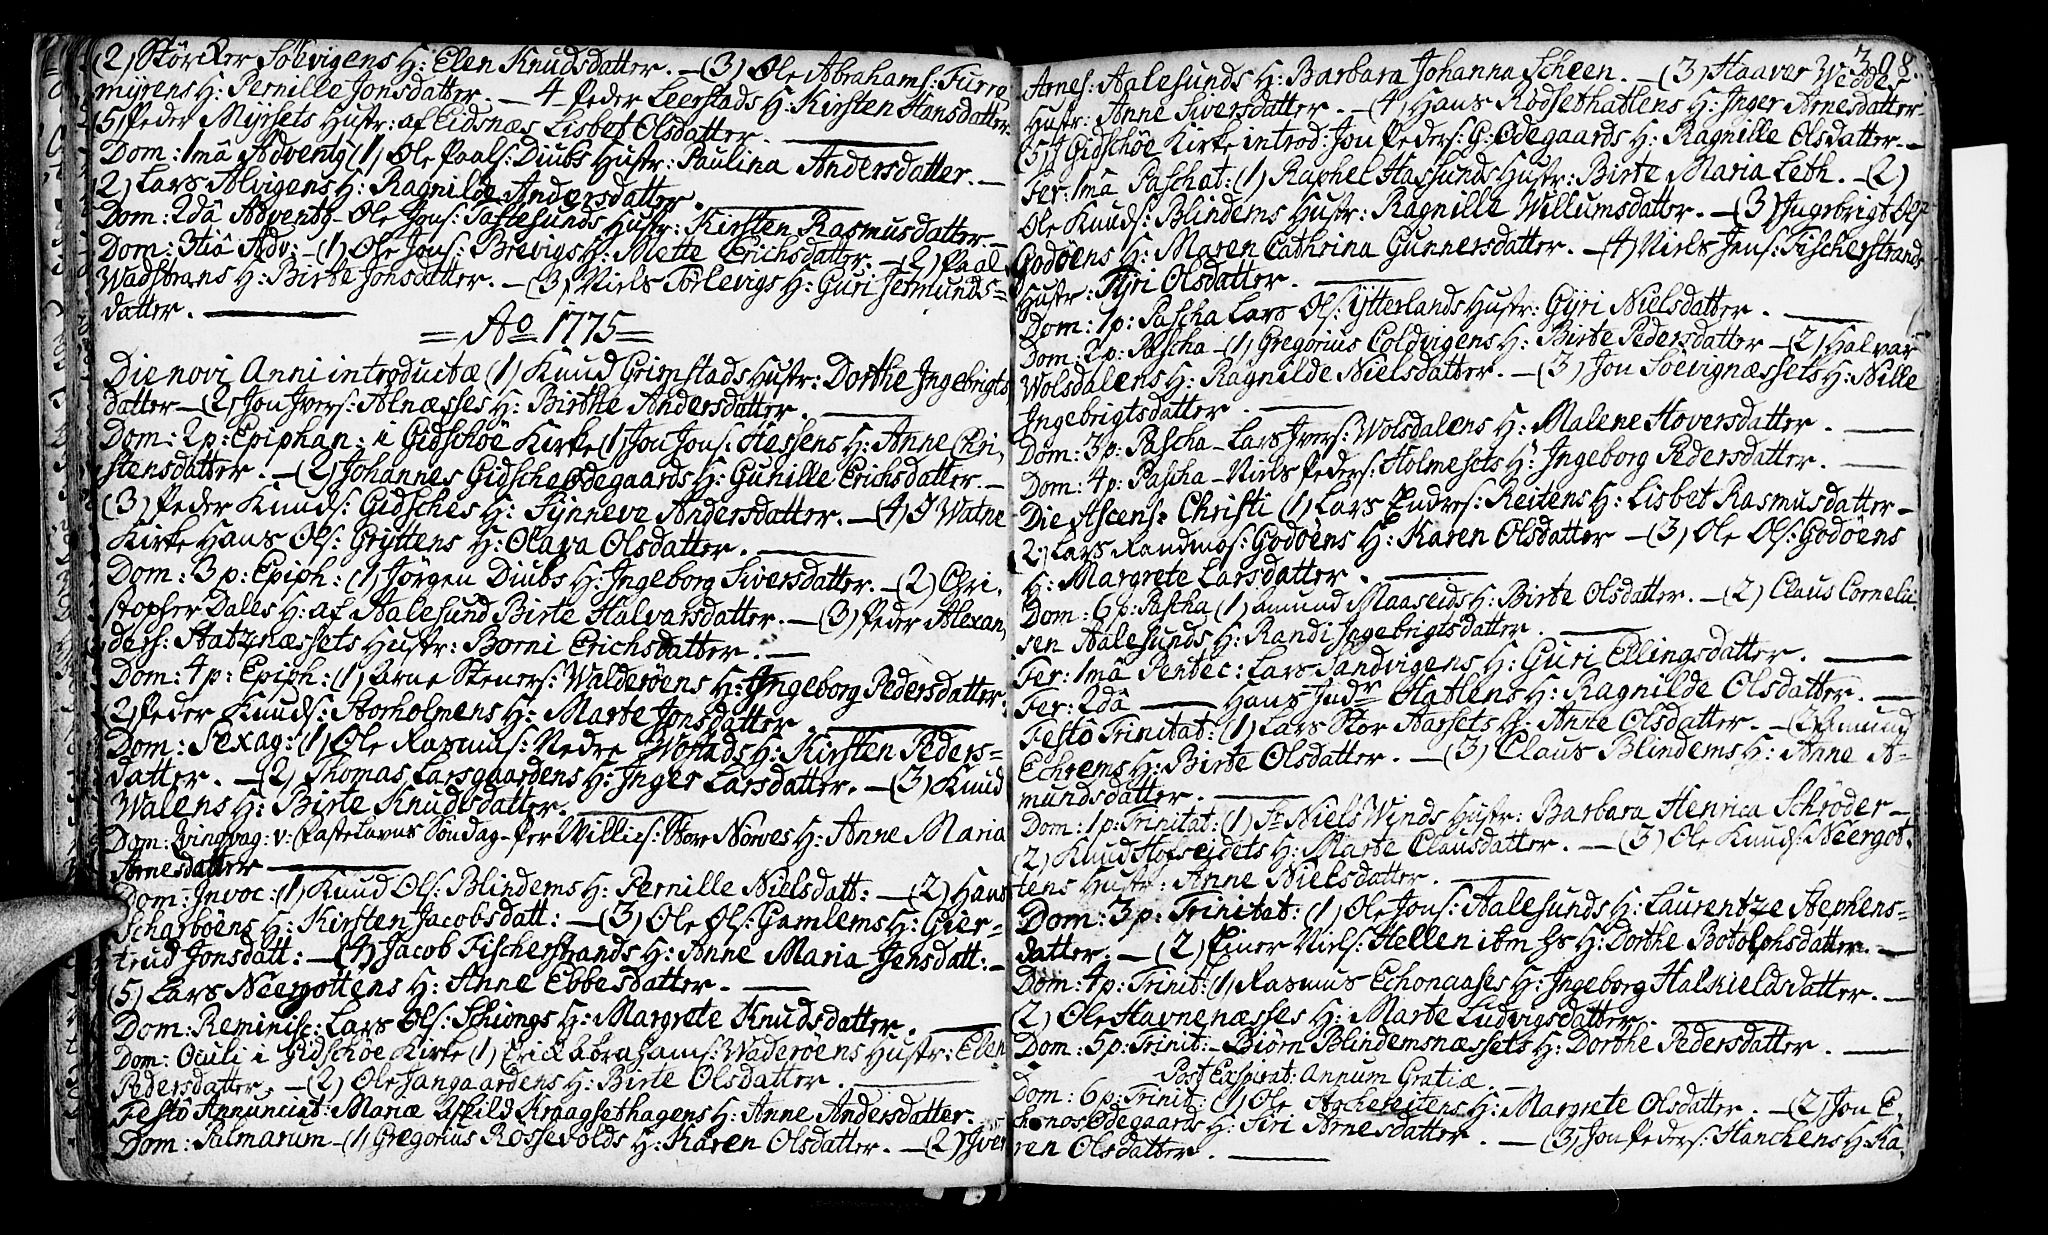 (2) Størcker Solevigens H: Elen Knudsdatter. — (3) Ole Abrahams: Furre
myrens H: Pernille Jonsdatter — 4 Peder Leerstads H: Kirsten Hansdatter
5) Peder Myrsets Hustr: af Eidsnæs Lisbet Olsdatter.
Dom: 1mâ Adventq (1) Ole Paals: Diubs Hustr: Paulina Andersdatter. —
2) Lars Alvigens H: Ragnilde Andersdatter.
Dom: 2dâ Adventq Ole Jons: Hustr: Kirsten Rasmusdatter —
Dom: 3tiâ Adv: — (1) Ole Jons: Brevigs H: Mette Erichsdatter — (2) Paal
Wadstrans H: Birte Jonsdatter. — (3) Niels Torlevigs H: Guri Jetmunds=
datter.
= Ao 1775 =
Die novi Anni introductæ (1) Knud Grimstads Hustr: Dorthe Ingebrigts
datter — (2) Jon Ivers: Alnæsses H: Birthe Andersdatter.
Dom: 2 p: Epiphan: i Gidschöe Kirke (1) Jon Jons: Hessens H: Anne Chri,
stensdatter. — (2) Johannes Gidsche Ödegaards H: Gunille Erichsdatter —
(3) Peder Knuds: Gidsches H: Synneve Andersdatter. — (4) I Watne
Kirke Hans Ols: Gryttens H: Olava Olsdatter.
Dom: 3 p: Epiph: (1) Jörgen Diubs H: Ingeborg Siversdatter. — (2) Chri,
stopher Dales H: af Aalesund Birte Halvarsdatter. — (3) Peder Alexan,
ders: Statznæssets Hustr: Borni Erichsdatter. —
Dom: 4 p: Epiph: (1) Arne Steners: Walderöens H: Ingeborg Pedersdatter.
2) Peder Knuds: Storholmens H: Marte Jonsdatter.
Dom: Sexag: (1) Ole Rasmus: Nedre H: Kirsten Peders=
datter. — (2) Thomas Larsgaardens H: Inger Larsdatter. — (3) Knud
Walens H: Birte Knudsdatter.
Dom: Qvinqvag: v: Fastelavns Söndag Per Willies: Store Nörves H: Anne Maria
Arnesdatter
Dom: Invoc: (1) Knud Ols: Blindems H: Pernille Nielsdatt: — (2) Hans
Scharböens H: Kirsten Jacobsdatt: — (3) Ole Ols: Gamlems H: Gier=
trud Jonsdatt: — (4) Jacob Fischerstrands H: Anne Maria Jensdatt: —
(5) Lars Neergottens H: Anne Ebbesdatter.
Dom: Reminisc: Lars Ols: Schiongs H: Margrete Knudsdatter.
Dom: Oculi i Gidschöe Kirke (1) Erick Abrahams: Waderöens Hustr: Elen
Pedersdatter. — (2) Ole Jangaardens H: Birte Olsdatter.
Festô Annunciat: Mariæ Askild Kraagsethagens H: Anne Andersdatter.
Dom: Palmarum — (1) Gregorius Rössevolds H: Karen Olsdatter. — (2) Iver
308.
Arnes: Aalesunds H: Barbara Johanna Scheen. — (3) Haaver Wedde
Hustr: Anne Siversdatter. — (4) Hans Rödsethatlens H: Inger Arnesdatter
(5) I Gidschöe Kirke introd: Jon Peders: G: Ödegaards H: Ragnille Olsdatter. —
Fer: 1mâ Paschat: (1) Raphel Hassunds Hustr: Birte Maria Leth. — (2)
Ole Knuds: Blindems Hustr: Ragnille Willumsdatter. — (3) Ingebrigt Ols
Godöens H: Maren Cathrina Gunnersdatter. — (4) Niels Jens: Fischerstrands
Hustr: Tyri Olsdatter.
Dom: 1 p: Pascha Lars Ols: Ytterlands Hustr: Gyri Nielsdatter.
Dom: 2 p: Pascha — (1) Gregorius Coldvigens H: Birte Pedersdatter — (2) Halvar
Wolsdalens H: Ragnilde Nielsdatter. — (3) Jon Soevignæssets H: Nille
Ingebrigtsdatter.
Dom: 3 p: Pascha — Lars Ivers: Wolsdalens H: Malene Hoversdatter.
Dom: 4 p: Pascha — Niels Peders: Holmesets H: Ingeborg Pedersdatter.
Die Ascens: Christi (1) Lars Endres: Reitens H: Lisbet Rasmusdatter —
2) Lars Randmos: Godöens H: Karen Olsdatter — (3) Ole Ols: Godöens
H: Margrete Larsdatter.
Dom: 6 p: Pascha (1) Amund Maaseids H: Birte Olsdatter. — (2) Claus Corneliu
sen Aalesunds H: Randi Ingebrigtsdatter.
Fer: 1mâ Pentec: Lars Sandvigens H: Guri Ellingsdatter.
Fer: 2dâ — Hans Indr Hatlens H: Ragnilde Olsdatter.
Festô Trinitat: (1) Lars Stor Aassets H: Anne Olsdatter. — (2) Amund
Echrems H: Birte Olsdatter. — (3) Claus Blindems H: Anne A=
mundsdatter.
Dom: 1 p: Trinitat: (1) Sr Niels Winds Hustr: Barbara Henrica Schröder —
(2) Knud Hofseidets H: Marte Clausdatter. — (3) Ole Knuds: Neergot.
tens Hustr: Anne Nielsdatter.
Dom: 3 p: Trinitat: (1) Ole Jons: Aalesunds H: Laurentze Stephens=
datter. — (2) Einer Niels: Hellen ibm H: Dorthe Botolphsdatter. —
Dom: 4 p: Trinit: (1) Rasmus Echonaases H: Ingeborg Halkieldsdatter. —
(2) Ole Havnenæsses H: Marte Ludvigsdatter.
Dom: 5 p: Trinit: — Biørn Blindemsnæssets H: Dorthe Pedersdatter.
Post Exspirat: Annum Gratiæ.
Dom: 6 p: Trinit: (1) Ole H: Margrete Olsdatter. — (2) Jon E.
chonos Ödegaards H: Siri Arnesdatter. — (3) Jon Peders: Hanckens H: Ka,
ren Olsdatter.